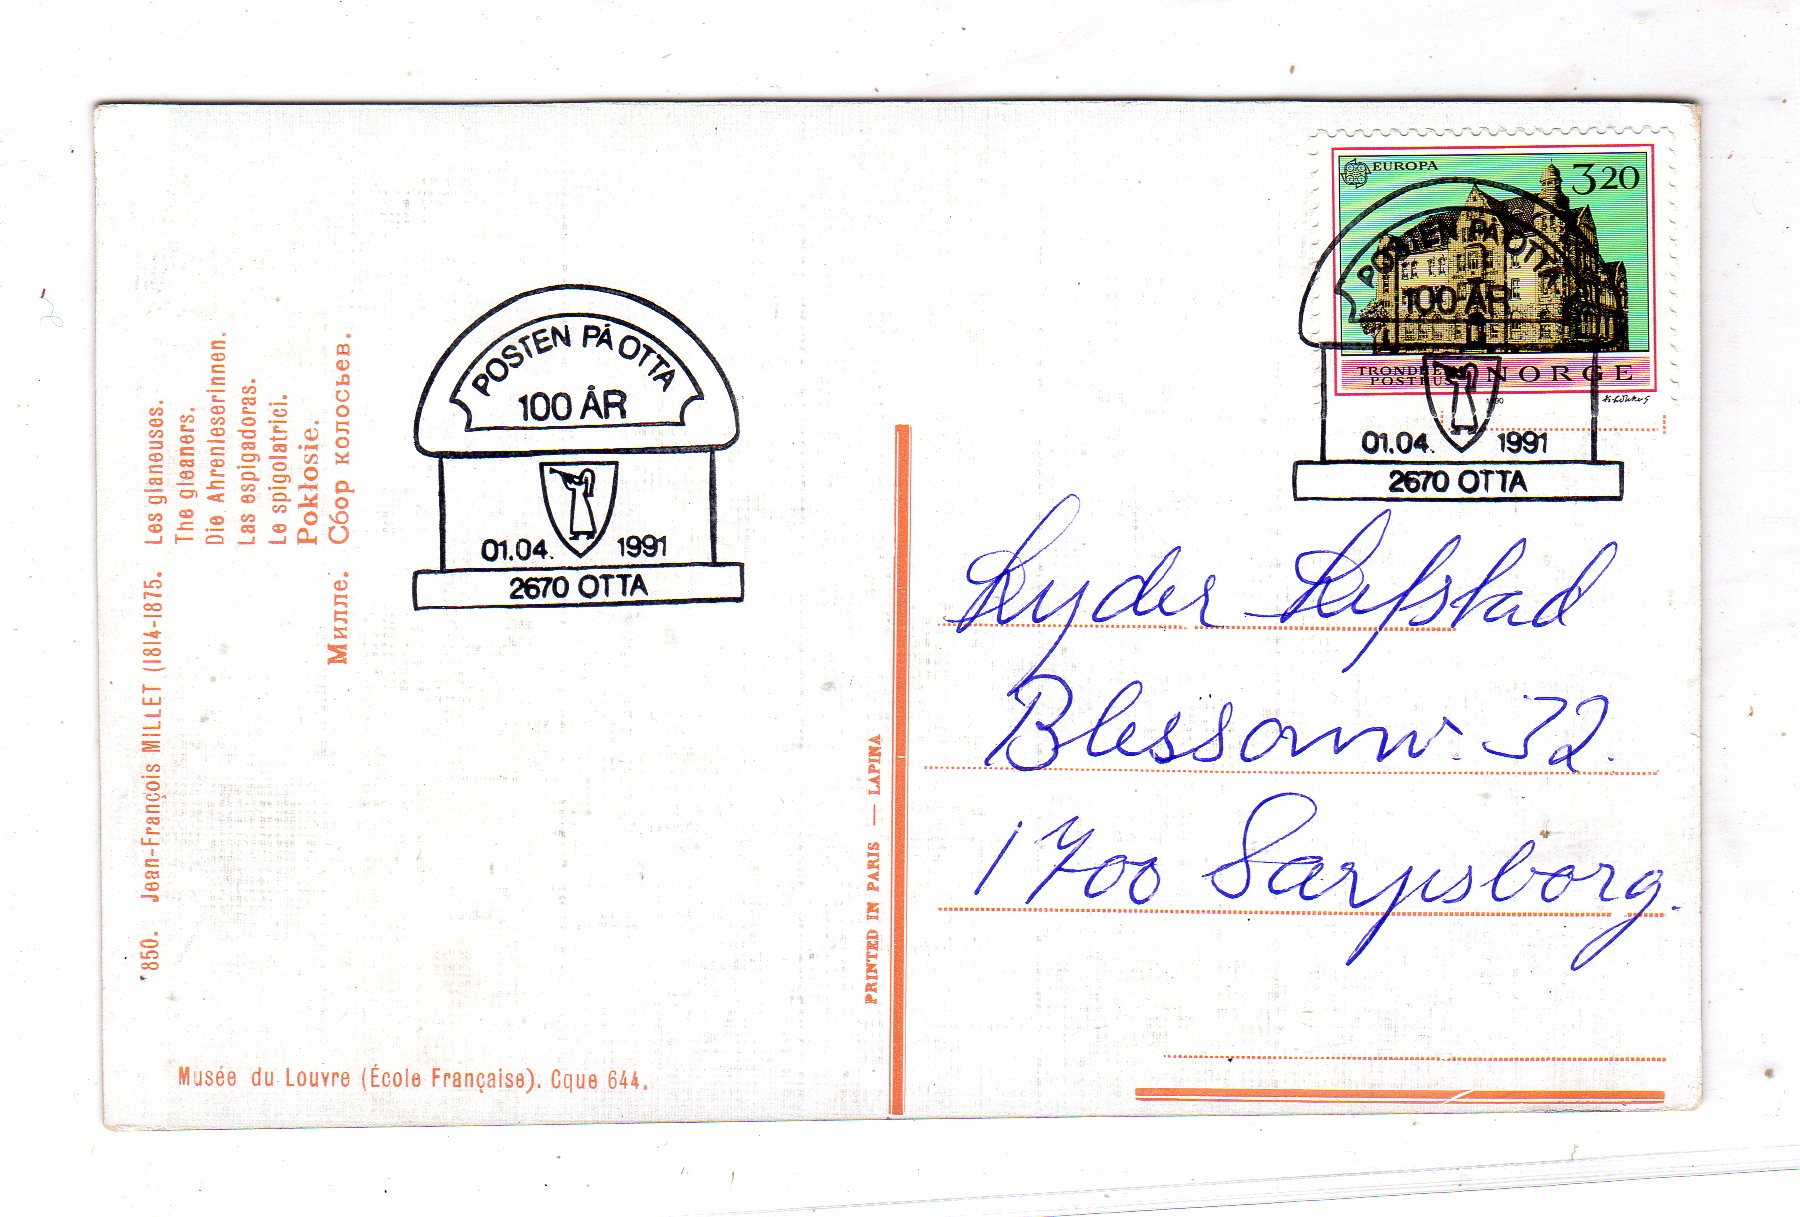 850. Jean-François MILLET (1814-1875. Les glaneuses.
The gleaners.
Die Ahrenleserinnen.
Las espigadoras.
Le spigolatrici.
Pokłosie.
Милле. Сбор колосьев.
Musée du Louvre (École Française). Cque 644.
POSTEN PÅ OTTA
100 ÅR
01.04. 1991
2670 OTTA
PRINTED IN PARIS — LAPINA
EUROPA 320
TRONDHEIM
POSTHUS
NORGE
POSTEN PÅ OTTA
100 ÅR
01.04. 1991
2670 OTTA
Lyder Lefstad
Blessomv. 32.
1700 Sarpsborg.